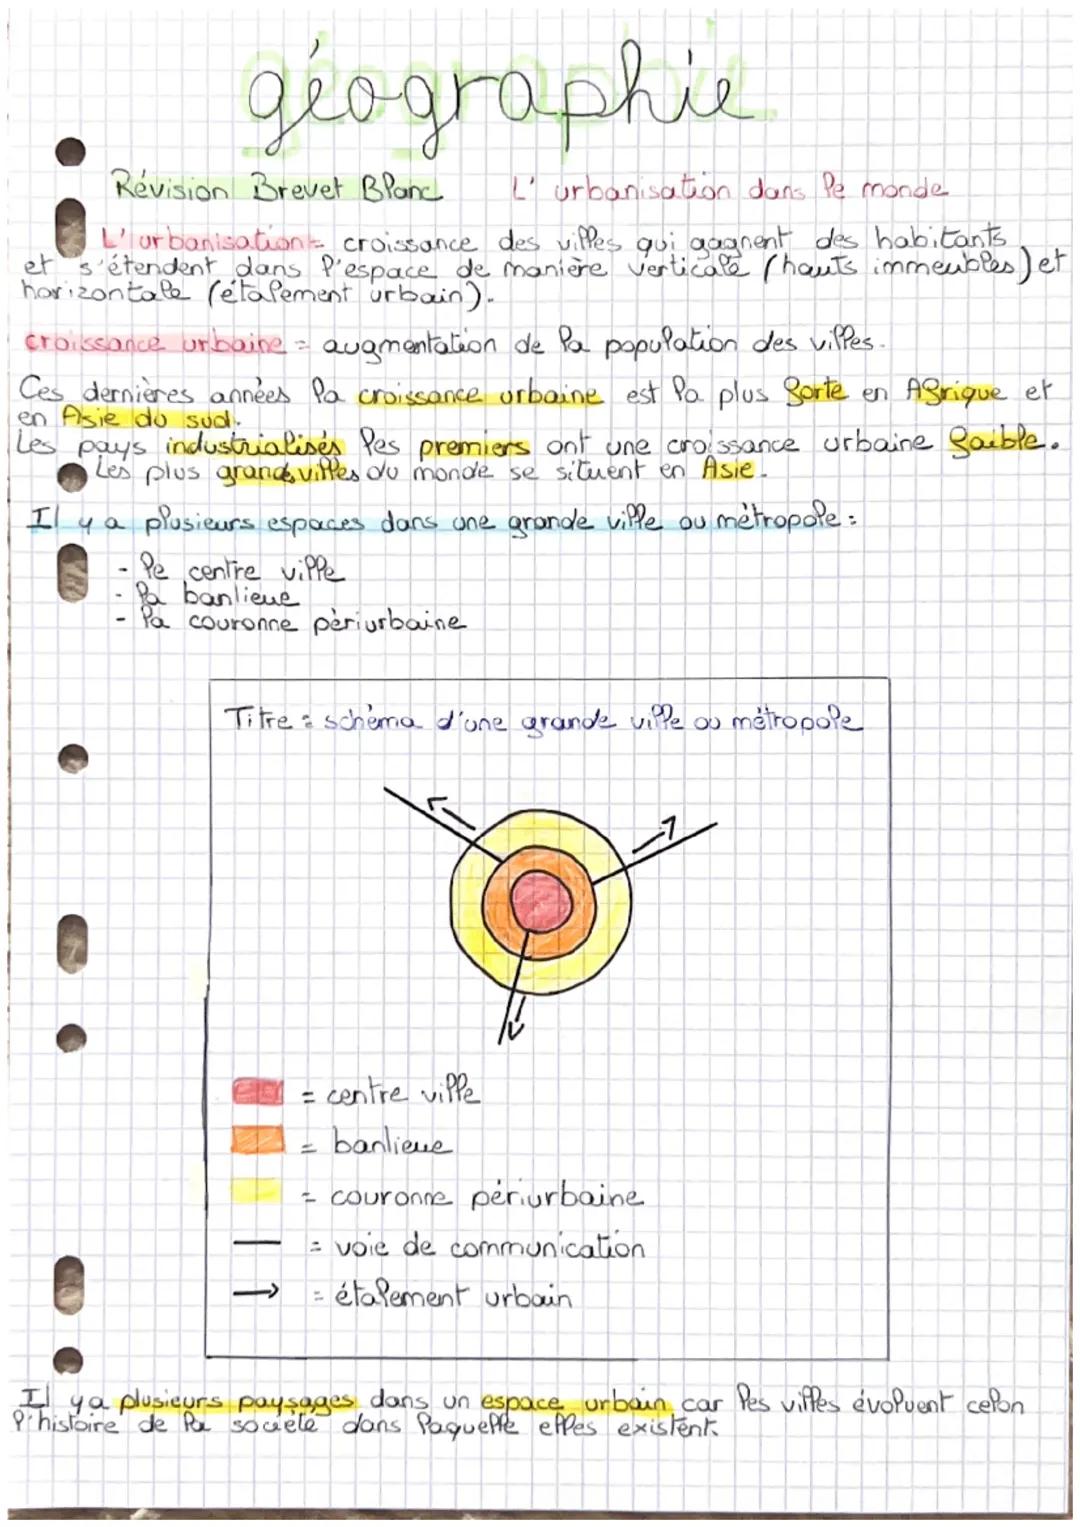 géographie
Révision Brevet Blanc L'urbanisation dans le monde
L'urbanisation = croissance des villes qui gagnent des habitants
et s'étendent dans l'espace de manière verticale (hauts immeubles) et
horizontale (étalement urbain).
croissance urbaine = augmentation de la population des villes.
Ces dernières années la croissance urbaine est la plus forte en Afrique et
en Asie du sud.
Les pays industrialisés les premiers ont une croissance urbaine faible.
Les plus grandes villes du monde se situent en Asie.
Il y a plusieurs espaces dans une grande ville ou mètropole :
- le centre ville
- la banlieue
- la couronne pèriurbaine
Titre = schèma d'une grande ville ou métropole
= centre ville
= banlieue
= couronne périurbaine
= voie de communication
= étalement urbain
Il y a plusieurs paysages dans un espace urbain car les villes évoluent celon
l'histoire de la société dans laquelle elles existent.